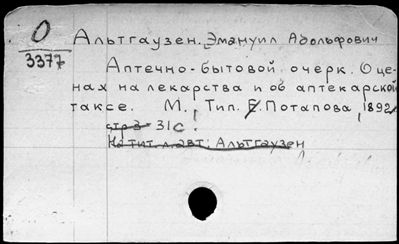 О
3377
Альтгаузен, Эмануил Адольфович
Аптечно-бытовой очерк. О це-
нах на лекарства и об аптекарской
таксе. М., Тип. Е. Потапова, 1892.
стр 3 31с.
На тит. л. авт: Альтгаузен